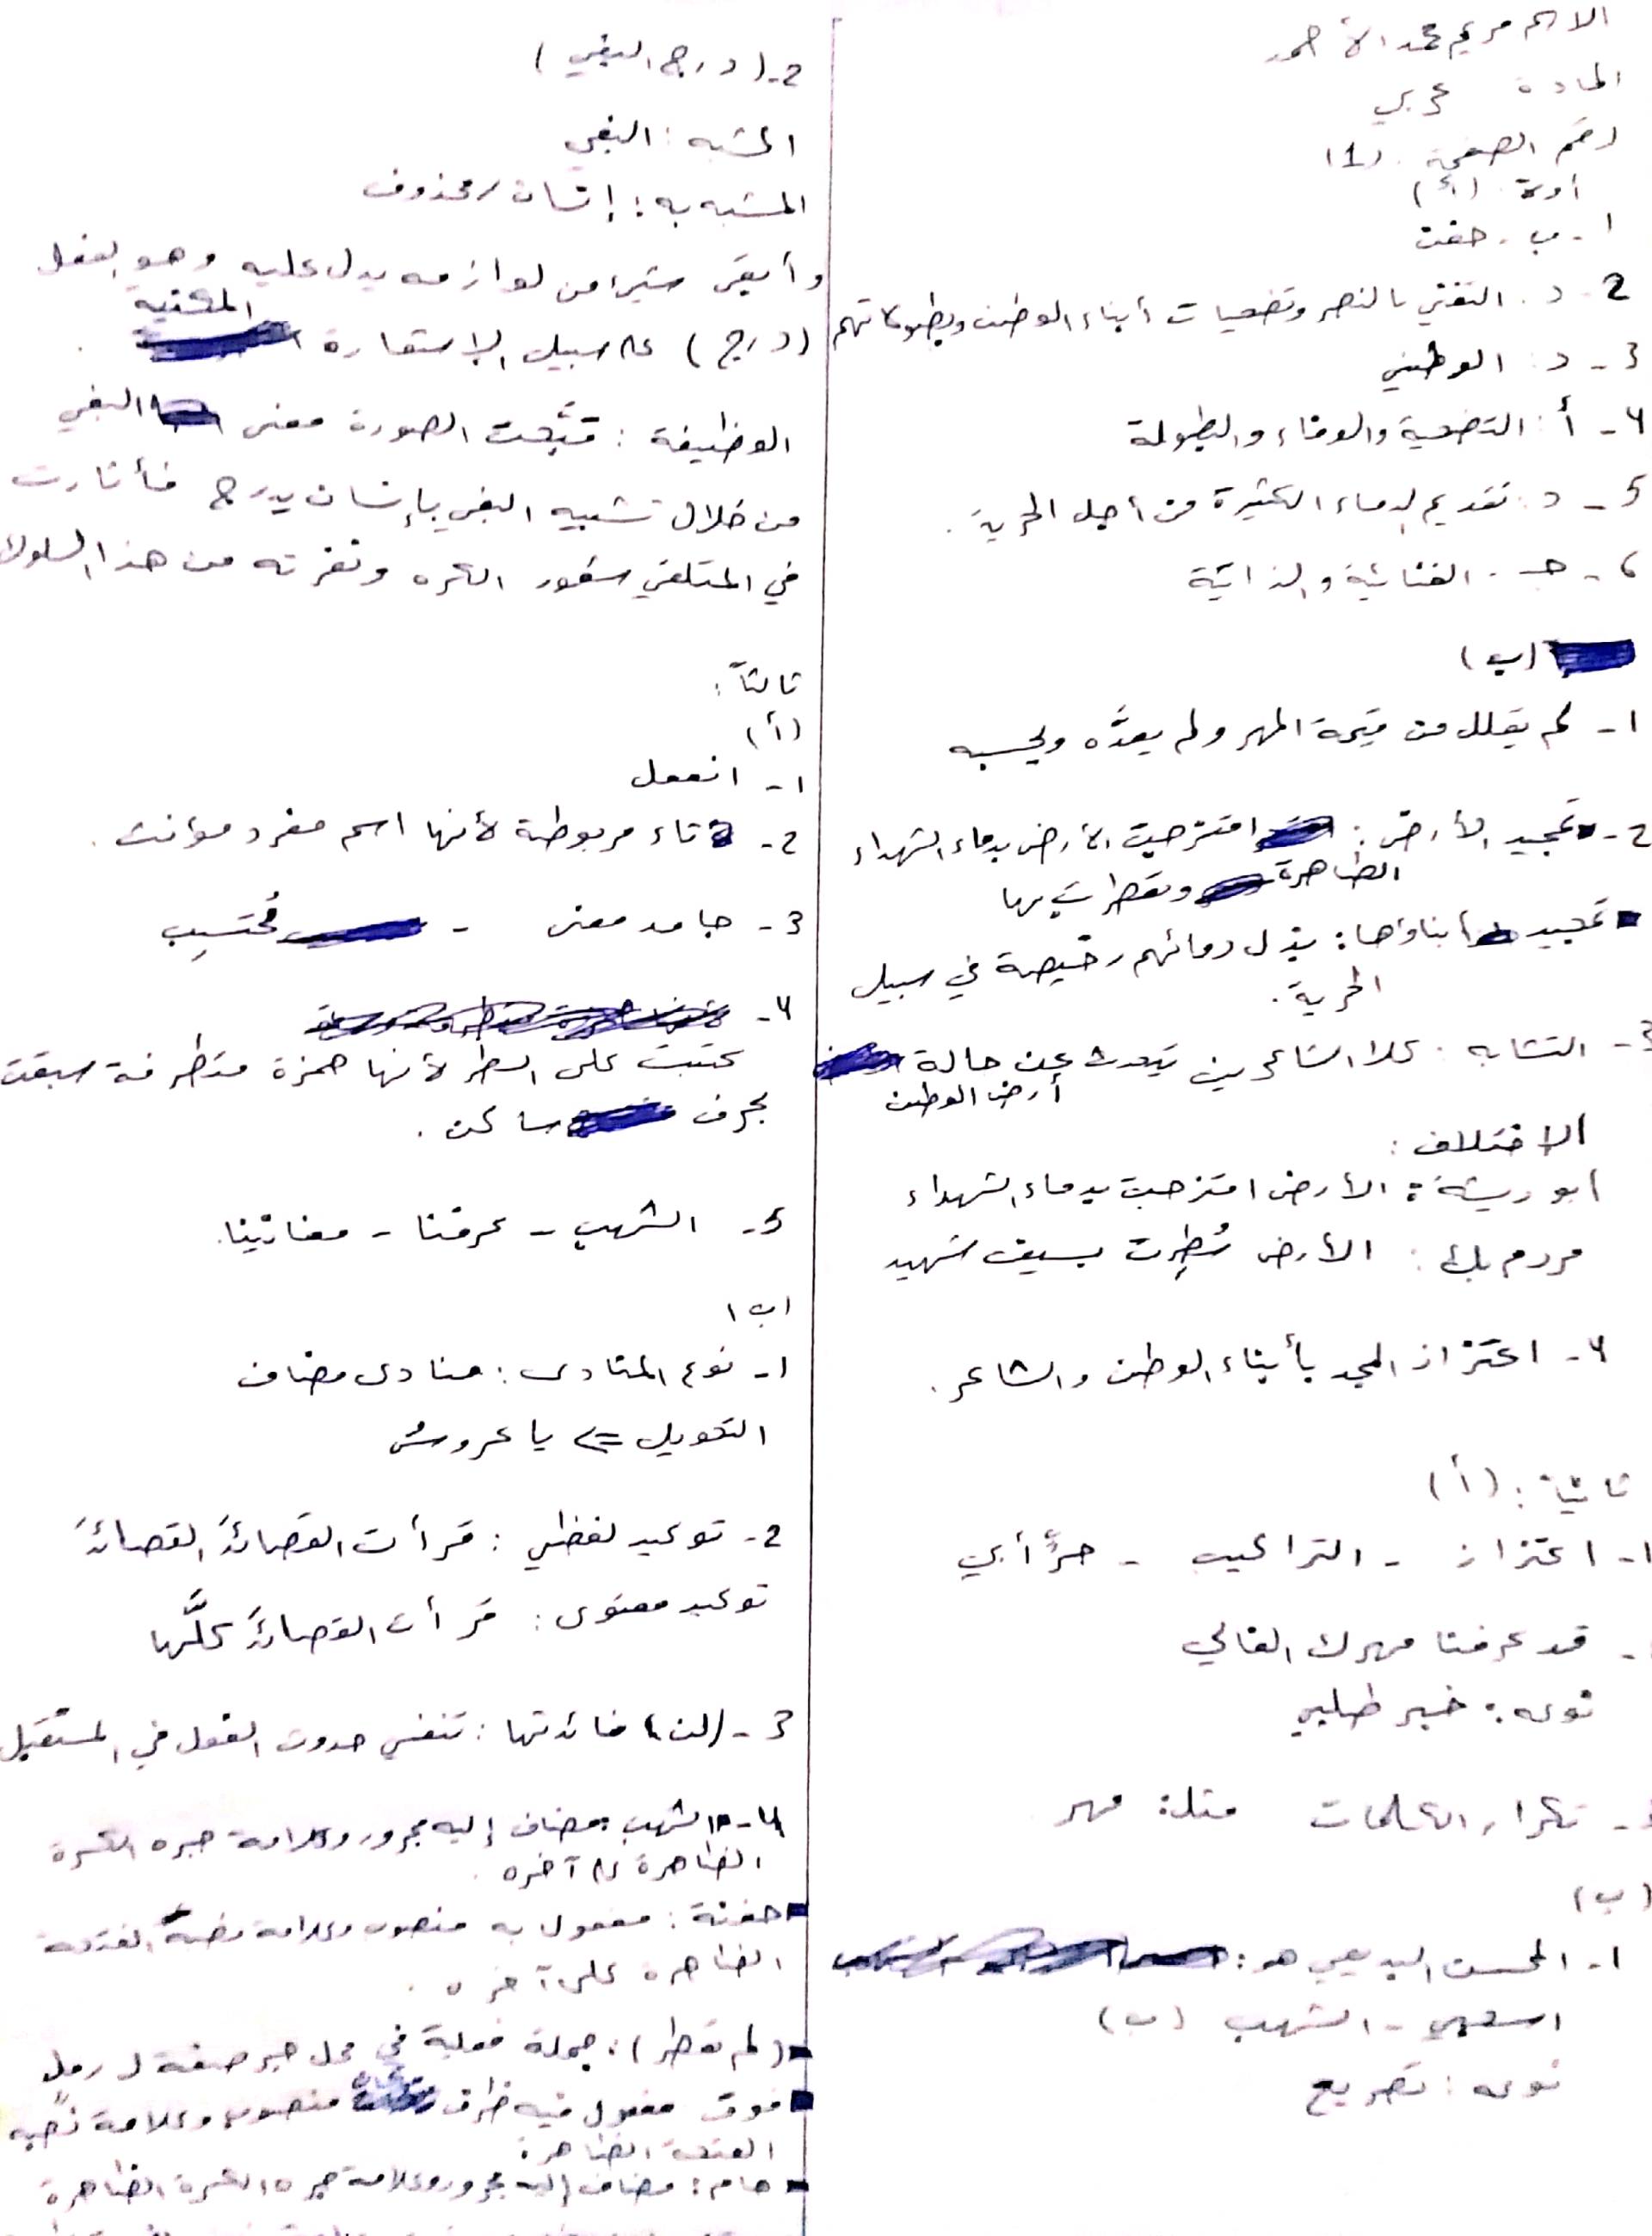 الاسم مريم محمد الأحمد
المادة عربي
رقم الصفحة (1)
أولاً (أ)
1- ب. حفنت
2- د. التغني بالنصر وتضحيات أبناء الوطن وبطولاتهم
3- د: الوطني
4- أ: التضحية والوفاء والبطولة
5- د: تقديم الدماء الكثيرة من أجل الحرية.
6- جـ. الغنائية والذاتية
(ب)
1- لم يقلل من قيمة المهر ولم يعدَّه ويحسبه
2- تمجيد الأرض: امتزجت الأرض بدماء الشهداء
الطاهرة وتعطرت بها
تمجيد أبناؤها: بذل دمائهم رخيصة في سبيل
الحرية.
3- التشابه: كلا الشاعرين يتحدث عن حالة
أرض الوطن
الاختلاف:
أبو ريشة: الأرض امتزجت بدماء الشهداء
مردم بك: الأرض سُطِرت بسيف شهيد
4- اعتزاز المجد بأبناء الوطن والشاعر.
ثانياً: (أ)
1- اعتزاز - التراكيب - حرٍّ أبي
- قد عرفنا مهرك الغالي
نوعه: خبر طلبي
- تكرار الكلمات مثل: مهر
(ب)
1- المحسن البديعي هو:
اسحبي - الشهب (ب)
نوعه: تصريع
2- (درج البغي)
المشبه: البغي
المشبه به: إنسان / محذوف
وأبقى شيئاً من لوازمه يدل عليه وهو الفعل
(درج) على سبيل الاستعارة المكنيه
الوظيفة: قبّحت الصورة معنى البغي
من خلال تشبيه البغي بإنسان يدرج فأثارت
في المتلقي شعور الكره ونفرته من هذا السلوك
ثالثاً:
(أ)
1- انفعل
2- تاء مربوطة لأنها اسم مفرد مؤنث.
3- جامد معنى - مُحتَسِب
4-
كتبت على السطر لأنها همزة متطرفة سبقت
بحرف ساكن.
5- الشهب - عرفنا - مغانينا.
(ب)
1- نوع المنادى: منادى مضاف
التحويل => يا عروسُ
2- توكيد لفظي: قرأت القصائدَ القصائدَ
توكيد معنوي: قرأت القصائدَ كلَّها
3- (لن) فائدتها: تنفي حدوث الفعل في المستقبل
4- الشهب: مضاف إليه مجرور وعلامة جره الكسرة
الظاهرة على آخره.
حفنة: مفعول به منصوب وعلامة نصبه الفتحة
الظاهرة على آخره.
(لم تعطر): جملة فعلية في محل جر صفة لـ رملٍ
فوق مفعول فيه ظرف مكان منصوب وعلامة نصبه
الفتحة الظاهرة
هام: مضاف إليه مجرور وعلامة جره الكسرة الظاهرة